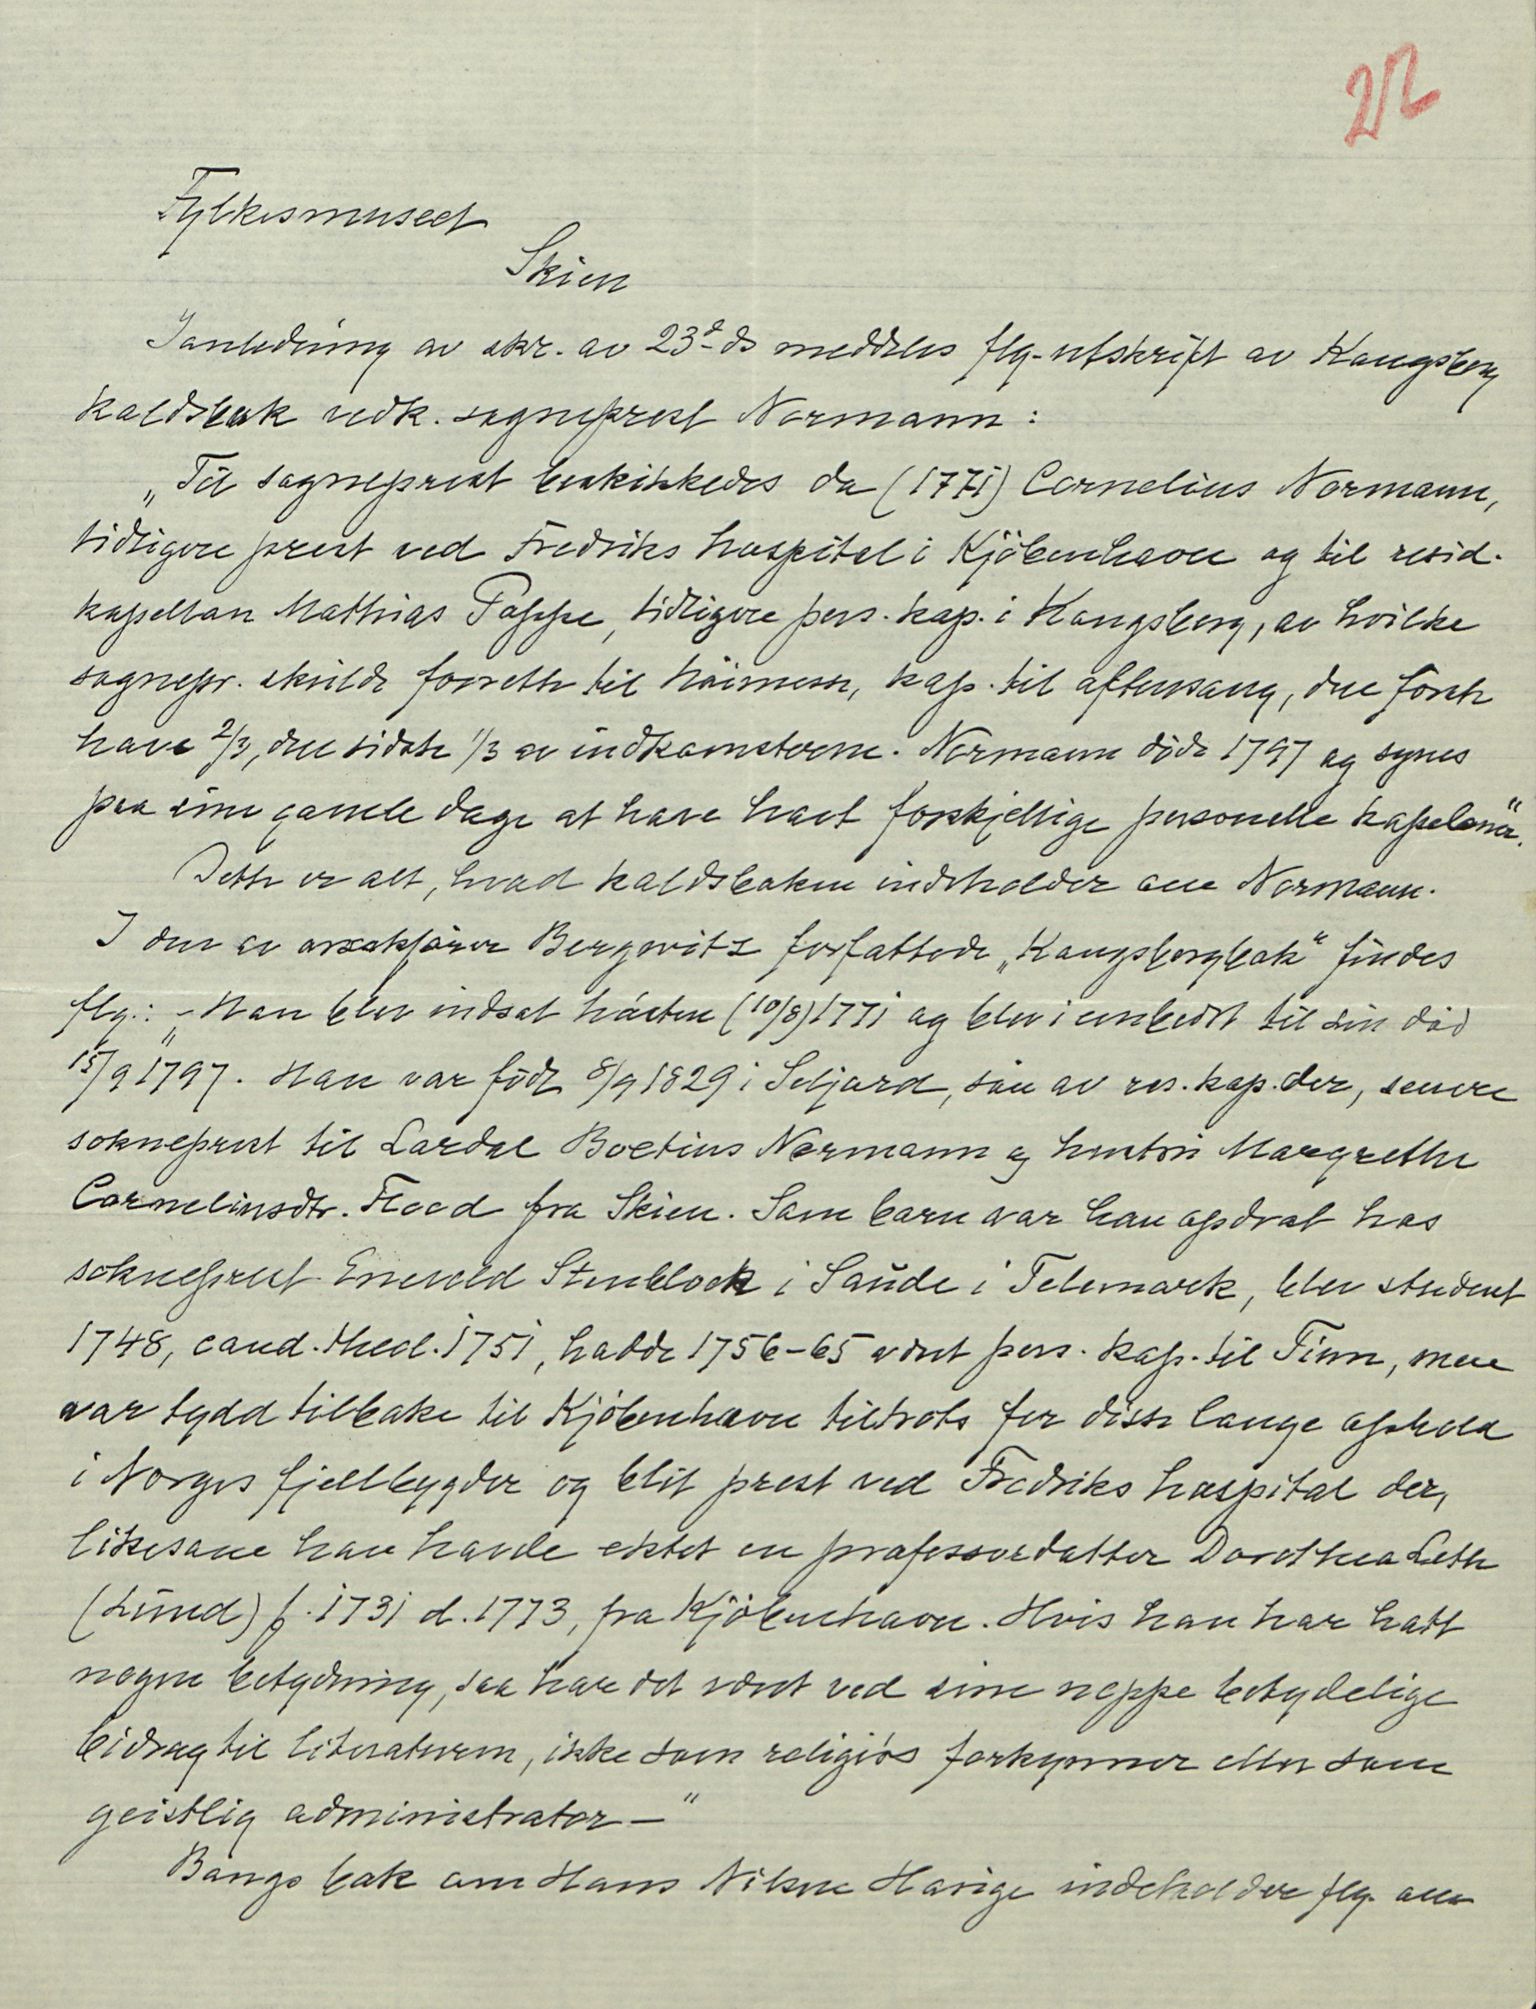 22
Fylkesmuseet
Skien
I anledning av skr. av 23d ds meddeles flg. utskrift av Kongsberg
kaldsbok vedk. sogneprest Normann:
„Til sogneprest beskikkedes da (1771) Cornelius Normann,
tidligere prest ved Fredriks hospital i Kjöbenhavn og til resid.
kapellan Mathias Poppe, tidligere pers. kap. i Kongsberg, av hvilke
sognepr. skulde forrette til höimesse, kap. til aftensang, den förste
have 2/3, den sidste 1/3 av indkomsterne. Normann döde 1797 og synes
paa sine gamle dage at have havt forskjellige personelle kapelaner".
Dette er alt, hvad kaldsboken indeholder om Normann.
I den av overlærer Bergwitz forfattede „Kongsbergbok" findes
flg.: „Han blev indsat hösten (10/8) 1771 og blev i embedet til sin död
15/9 1797. Han var född 8/9 1829 i Seljord, sön av res. kap. der, senere
sokneprest til Lardal Boetius Normann og hustru Margrethe
Corneliusdtr. Flood fra Skien. Som barn var han opdrat hos
sokneprest Enevold Stenblock i Saude i Telemark, blev student
1748, cand. theol. 1751, hadde 1756-65 været pers. kap. til Tinn, men
var tydd tilbake til Kjöbenhavn tiltrots for disse lange ophold
i Norges fjellbygder og blit prest ved Fredriks hospital der,
likesom han havde ektet en professordatter Dorothea Leth
(Lund) f. 1731 d. 1773, fra Kjöbenhavn. Hvis han har hatt
nogen betydning, saa har det været ved sine neppe betydelige
bidrag til literaturen, ikke som religiös forkynner eller som
geistlig administrator —"
Bangs bok om Hans Nilsen Hauge indeholder flg. om